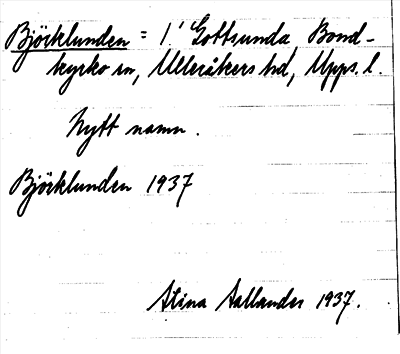 Björklunden = 1' Gottsunda Bond-
kyrko sn, Ulleråkers hd, Upps. l.
Nytt namn.
Björklunden 1937
Stina Aallander 1937.